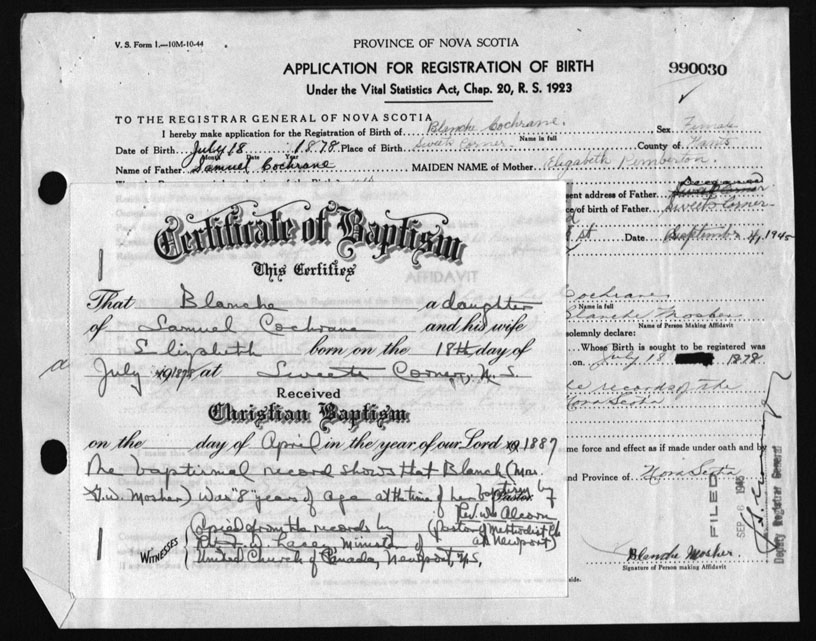 V. S. Form 1.—10M-10-44
PROVINCE OF NOVA SCOTIA
APPLICATION FOR REGISTRATION OF BIRTH
990030
Under the Vital Statistics Act, Chap. 20, R. S. 1923
TO THE REGISTRAR GENERAL OF NOVA SCOTIA
I hereby make application for the Registration of Birth of Blanche Cochrane. Sex Female
Name in full
Date of Birth July 18 1878 Place of Birth Sweets Corner County of Hants
Month Date Year
Name of Father Samuel Cochrane MAIDEN NAME of Mother Elizabeth Pemberton
Deceased
sent address of Father
of birth of Father Sweets Corner
Date September 4, 1945
AFFIDAVIT
Cochrane
Name in full
Blanche Mosher
Name of Person Making Affidavit
solemnly declare:
Whose Birth is sought to be registered was
on July 18 1878
the records of the
Nova Scotia
me force and effect as if made under oath and by
nd Province of Nova Scotia
FILED
SEP 6 1945
Deputy Registrar General
Blanche Mosher
Signature of Person making Affidavit
Certificate of Baptism
This Certifies
That Blanche a daughter
of Samuel Cochrane and his wife
Elizabeth born on the 18th day of
July 1878 at Sweets Corner, N.S
Received
Christian Baptism
on the day of April in the year of our Lord 1887
The baptismal record shows that Blanch (Mrs.
G.W. Mosher) was "8" years of age at the time of her baptism by
Rev. Wm Alcorn
Copied from the records by (pastor of Methodist Ch
at Newport)
WITNESSES
Minister of
United Church of Canada, Newport, N.S.